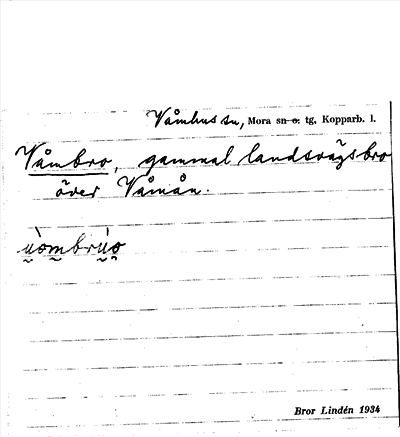 Våmhus sn, Mora sn o. tg, Kopparb. l.
Våmbro, gammal landsvägsbro
över Våmån.
u̯òm̯bru̯ó̯
Bror Lindén 1934